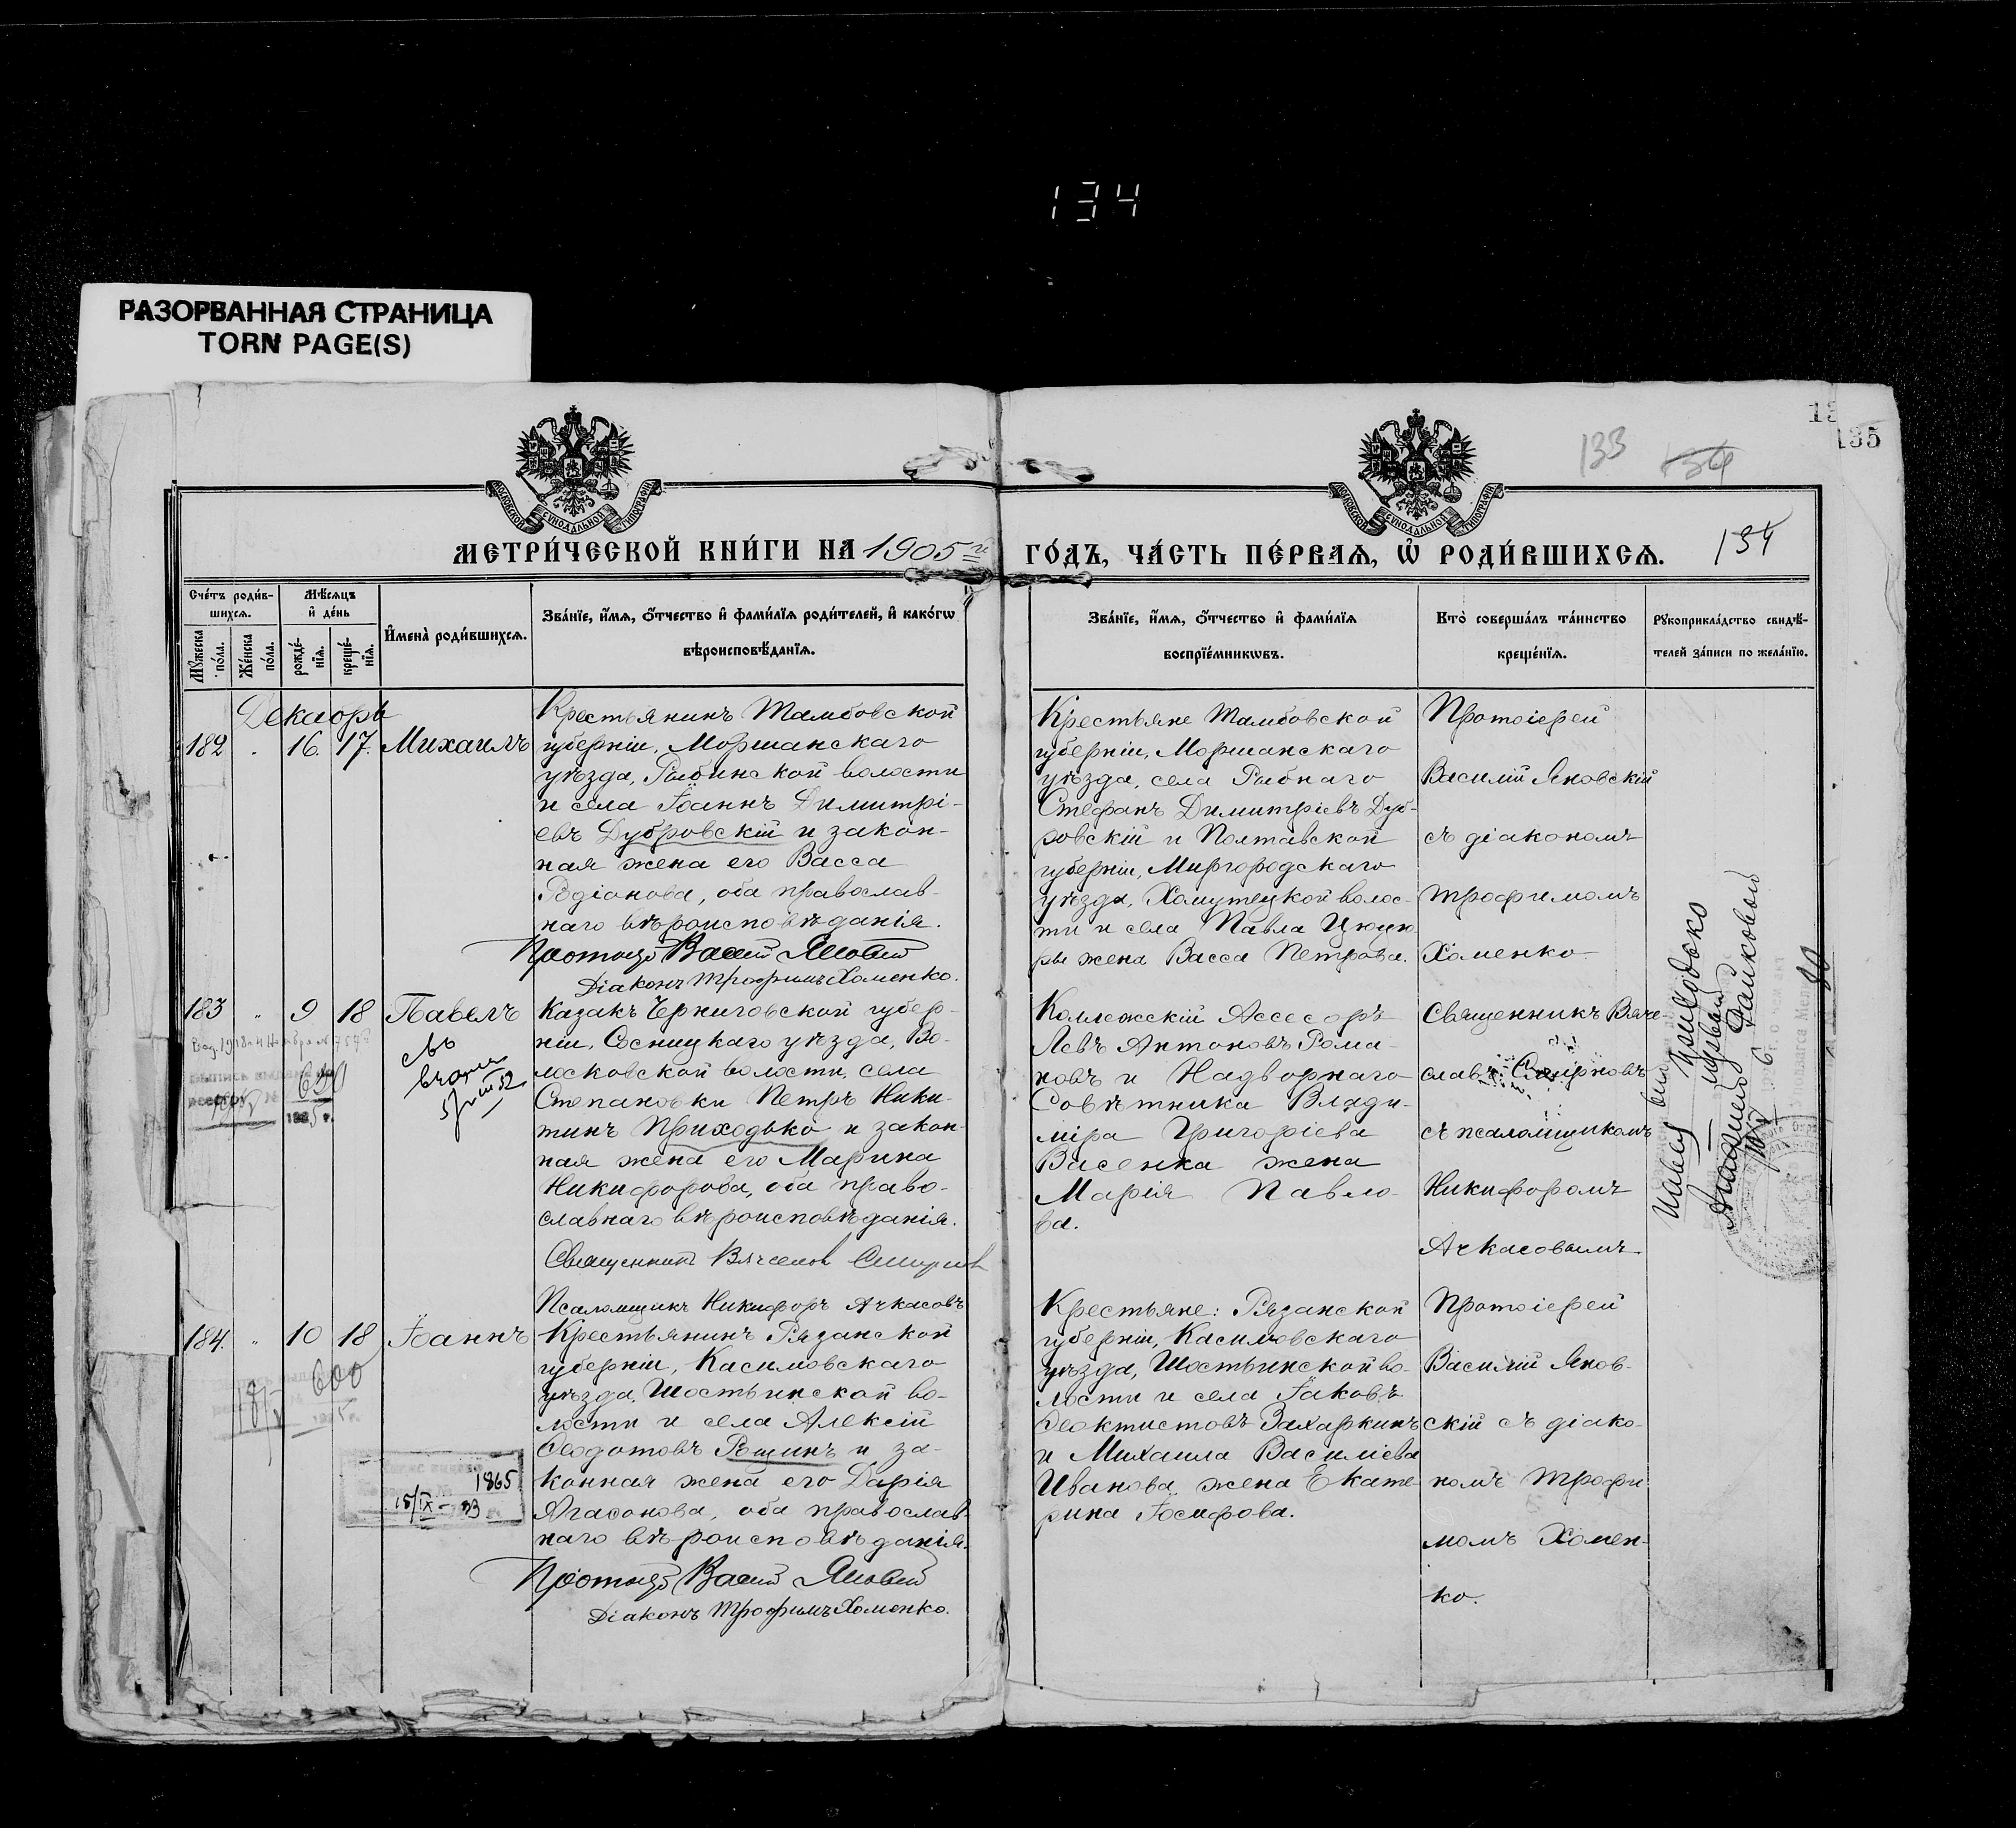 134
РАЗОРВАННАЯ СТРАНИЦА
TORN PAGE(S)
135
133
134
МЕТРИ́ЧЕСКОЙ КНИ́ГИ НА 1905 й
ГО́ДЪ, ЧА́СТЬ ПЕ́РВАЯ, Ѡ҆ РОДИ́ВШИХСЯ.
134
Сче́тъ роди́в-
шихся.
Мѣ́сяцъ
и҆ де́нь
И҆мена̀ роди́вшихся.
Зва́нїе, и҆́мя, о҆́тчество и҆ фами́лїя роди́телей, и҆ како́гѡ
вѣроисповѣ́данїя.
Мꙋ́жеска
по́ла.
Же́нска
по́ла.
рожде́-
нїя.
креще́-
нїя.
Зва́нїе, и҆́мя, о҆́тчество и҆ фами́лїя
воспрїе́мникѡвъ.
Кто̀ соверша́лъ та́инство
креще́нїя.
Рꙋкоприкла́дство свидѣ́-
телей за́писи по жела́нїю.
Декабрь
182 " 16. 17. Михаилъ
Крестьянинъ Тамбовской
губерніи, Моршанскаго
уѣзда, Рыбинской волости
и села Іоаннъ Димитрі-
евъ Дубровскій и закон-
ная жена его Васса
Родіонова, оба православ-
наго вѣроисповѣданія.
Діаконъ Трофимъ Хоменко.
Крестьяне Тамбовской
губерніи, Моршанскаго
уѣзда, села Рыбнаго
Стефанъ Димитріевъ Дуб-
ровскій и Полтавской
губерніи, Миргородскаго
уѣзда, Хомутецкой волос-
ти и села Павла Цюцю
ры жена Васса Петрова.
Протоіерей
Василій Яновскій
съ діакономъ
Трофимомъ
Хоменко
183 " 9 18 Павелъ
630
Казакъ Черниговской губер-
ніи, Сосницкаго уѣзда, Во-
лосковской волости, села
Степановки Петръ Ники-
тинъ Приходько и закон-
ная жена его Марина
Никифорова, оба право-
славнаго вѣроисповѣданія.
Священникъ Вячеславъ Смирнов
Псаломщикъ Никифоръ Ачкасовъ
Коллежскій Ассесоръ
Левъ Антоновъ Рома-
новъ и Надворнаго
Совѣтника Влади-
міра Григоріева
Васенка жена
Марія Павло-
ва.
Священникъ Вяче-
славъ Смирновъ
съ псаломщикомъ
Никифоромъ
Ачкасовымъ
184. " 10 18 Іоаннъ
600
1865
15/IX - 33
Крестьянинъ Рязанской
губерніи, Касимовскаго
уѣзда, Шостьинской во-
лости и села Алексій
Ѳеодотовъ Рощинъ и за-
конная жена его Дарія
Агаѳонова, оба православ-
наго вѣроисповѣданія.
Діаконъ Трофимъ Хоменко.
Крестьяне: Рязанской
губерніи, Касимовскаго
уѣзда, Шостьинской во-
лости и села Іаковъ
Ѳеоктистовъ Захаркинъ
и Михаила Василіева
Иванова жена Екате-
рина Іосифова.
Протоіерей
Василій Янов-
скій съ діако-
номъ Трофи-
момъ Хомен-
ко.